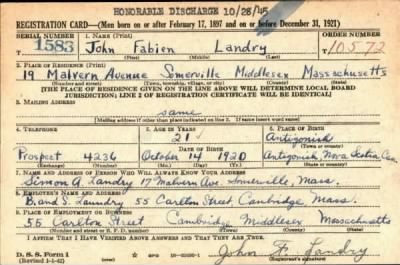 HONORABLE DISCHARGE 10/28/45
REGISTRATION CARD—(Men born on or after February 17, 1897 and on or before December 31, 1921)
SERIAL NUMBER 1. NAME (Print) ORDER NUMBER
1583 John Fabien Landry 10572
(First) (Middle) (Last)
2. PLACE OF RESIDENCE (Print)
19 Malvern Avenue Somerville Middlesex Massachusetts
(Number and street) (Town, township, village, or city) (County) (State)
[THE PLACE OF RESIDENCE GIVEN ON THE LINE ABOVE WILL DETERMINE LOCAL BOARD
JURISDICTION; LINE 2 OF REGISTRATION CERTIFICATE WILL BE IDENTICAL]
3. MAILING ADDRESS
same
[Mailing address if other than place indicated on line 2. If same insert word same]
4. TELEPHONE 5. AGE IN YEARS 6. PLACE OF BIRTH
21 Antigonish
DATE OF BIRTH (Town or county)
Prospect 4236 October 14 1920 Antigonish, Nova Scotia Can.
(Exchange) (Number) (Mo.) (Day) (Yr.) (State or country)
7. NAME AND ADDRESS OF PERSON WHO WILL ALWAYS KNOW YOUR ADDRESS
Simon A. Landry 17 Malvern Ave. Somerville, Mass.
8. EMPLOYER'S NAME AND ADDRESS
B. and S. Laundry 55 Carlton Street Cambridge Mass.
9. PLACE OF EMPLOYMENT OR BUSINESS
55 Carlton Street Cambridge Middlesex Massachusetts
(Number and street or R. F. D. number) (Town) (County) (State)
I AFFIRM THAT I HAVE VERIFIED ABOVE ANSWERS AND THAT THEY ARE TRUE.
D. S. S. Form 1
(Revised 1-1-42) (over)
John F. Landry
(Registrant's signature)